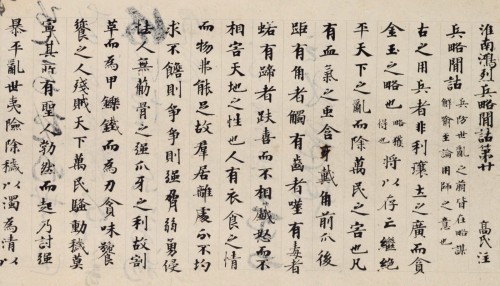 淮南鴻列兵略閒詁第廿 高氏注
兵略閒詁 兵防世亂之萌皆在略謀
解喻至論用師之意也
古之用兵者非利壤土之廣而貪
金玉之略也 略獲得也 將以存亡繼絶
平天下之亂而除萬民之害也凡
有血氣之虫含牙戴角前爪後
距有角者觸有齒者噬有毒者
有蹄者趹喜而不相戲怒而不
相害天地之性也人有衣食之情
而物弗能足故羣居雜處分不均
求不贍則爭爭則强脅弱勇侵
怯人無筋骨之强爪牙之利故割
革而為甲鑠鐵而為刃貪味饕
餮之人殘賊天下萬民騷動穢莫
寧其所有聖人勃然而起乃討强
暴平亂世夷險除穢以濁為清以